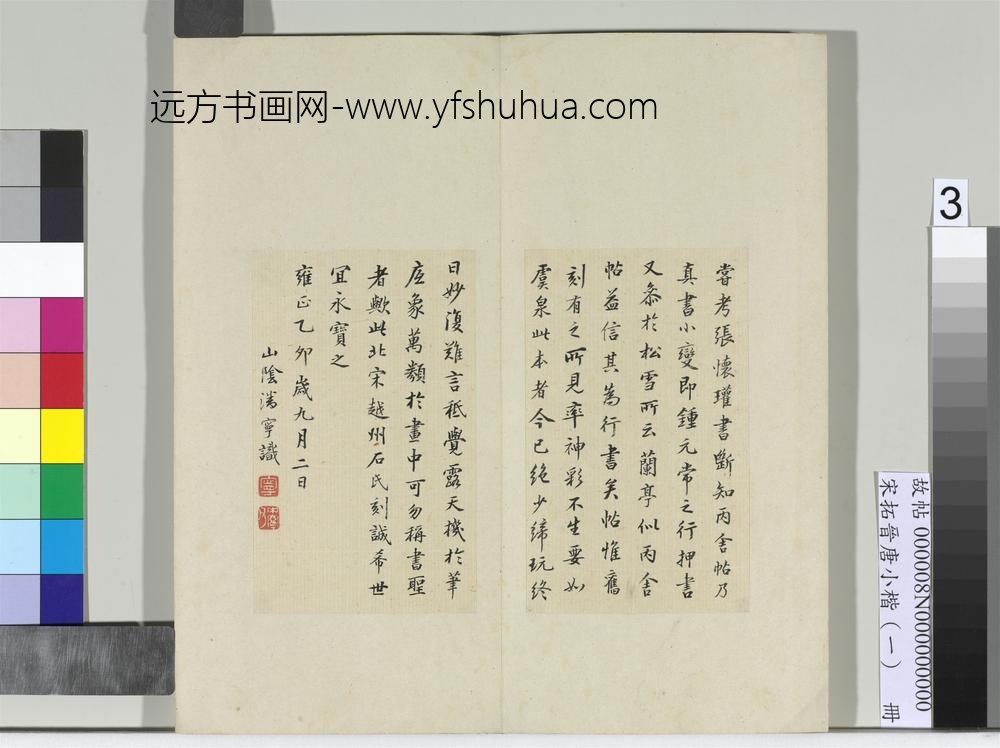 远方书画网-www.yfshuhua.com
嘗考張懷瓘書斷知丙舍帖乃
真書小變即鍾元常之行押書
又叅於松雪所云蘭亭似丙舍
帖益信其為行書矣帖惟舊
刻有之所見率神彩不生要如
虞泉此本者今已絶少締玩終
日妙復難言秪覺露天機於筆
底象萬類於畫中可勿稱書聖
者歟此北宋越州石氏刻誠希世
宜永寶之
雍正乙卯歲九月二日
山陰潘寧識
寧
3
故帖 000008N000000000
宋拓晉唐小楷（一） 冊